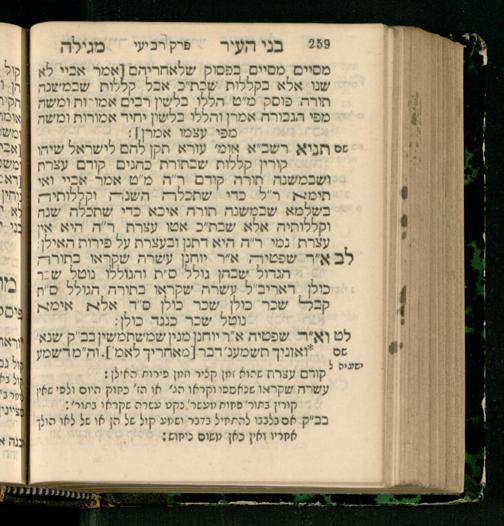 259 בני העיר פרק רביעי מגילה
מסיים מסיים בפסוק שלאחריהם [אמר אביי לא
שנו אלא בקללות שבת"כ אבל קללות שבמשנה
תורה פוסק מ"ט הללו בלשון רבים אמורות ומשה
מפי הגבורה אמרן והללו בלשון יחיד אמורות ומשה
מפי עצמו אמרן]:
שם תניא רשב"א אומ' עזרא תקן להם לישראל שיהו
קורין קללות שבתורת כהנים קודם עצרת
ושבמשנה תורה קודם ר"ה מ"ט אמר אביי ואי
תימא ר"ל כדי שתכלה השנה וקללותיה
בשלמא שבמשנה תורה איכא כדי שתכלה שנה
וקללותיה אלא שבת"כ אטו עצרת ר"ה היא אין
עצרת נמי ר"ה היא דתנן ובעצרת על פירות האילן:
לב א"ר שפטיה א"ר יוחנן עשרה שקראו בתורה
הגדול שבהן גולל ס"ת והגוללו נוטל שכר
כולן דאריב"ל עשרה שקראו בתורה הגולל ס"ת
קבל שכר כולן שכר כולן ס"ד אלא אימא
נוטל שכר כנגד כולן:
לט וא"ר שפטיה א"ר יוחנן מנין שמשתמשין בב"ק שנא'
שם *ואזניך תשמענ' דבר [מאחריך לאמ']. וה"מ דשמע
ישעיה ל
קודם עצרת שהוא זמן
עשרה שקראו שנאספו וקראו הג' או הז' כחוק היום ולפי שאין
קורין בתור' פחות מעשר' נקט עשרה שקראו בתור':
בב"ק. אם בלבבו להתחיל בדבר ושמע קול של הן או של לאו הולך
אחריו ואין כאן משום ניחוש: